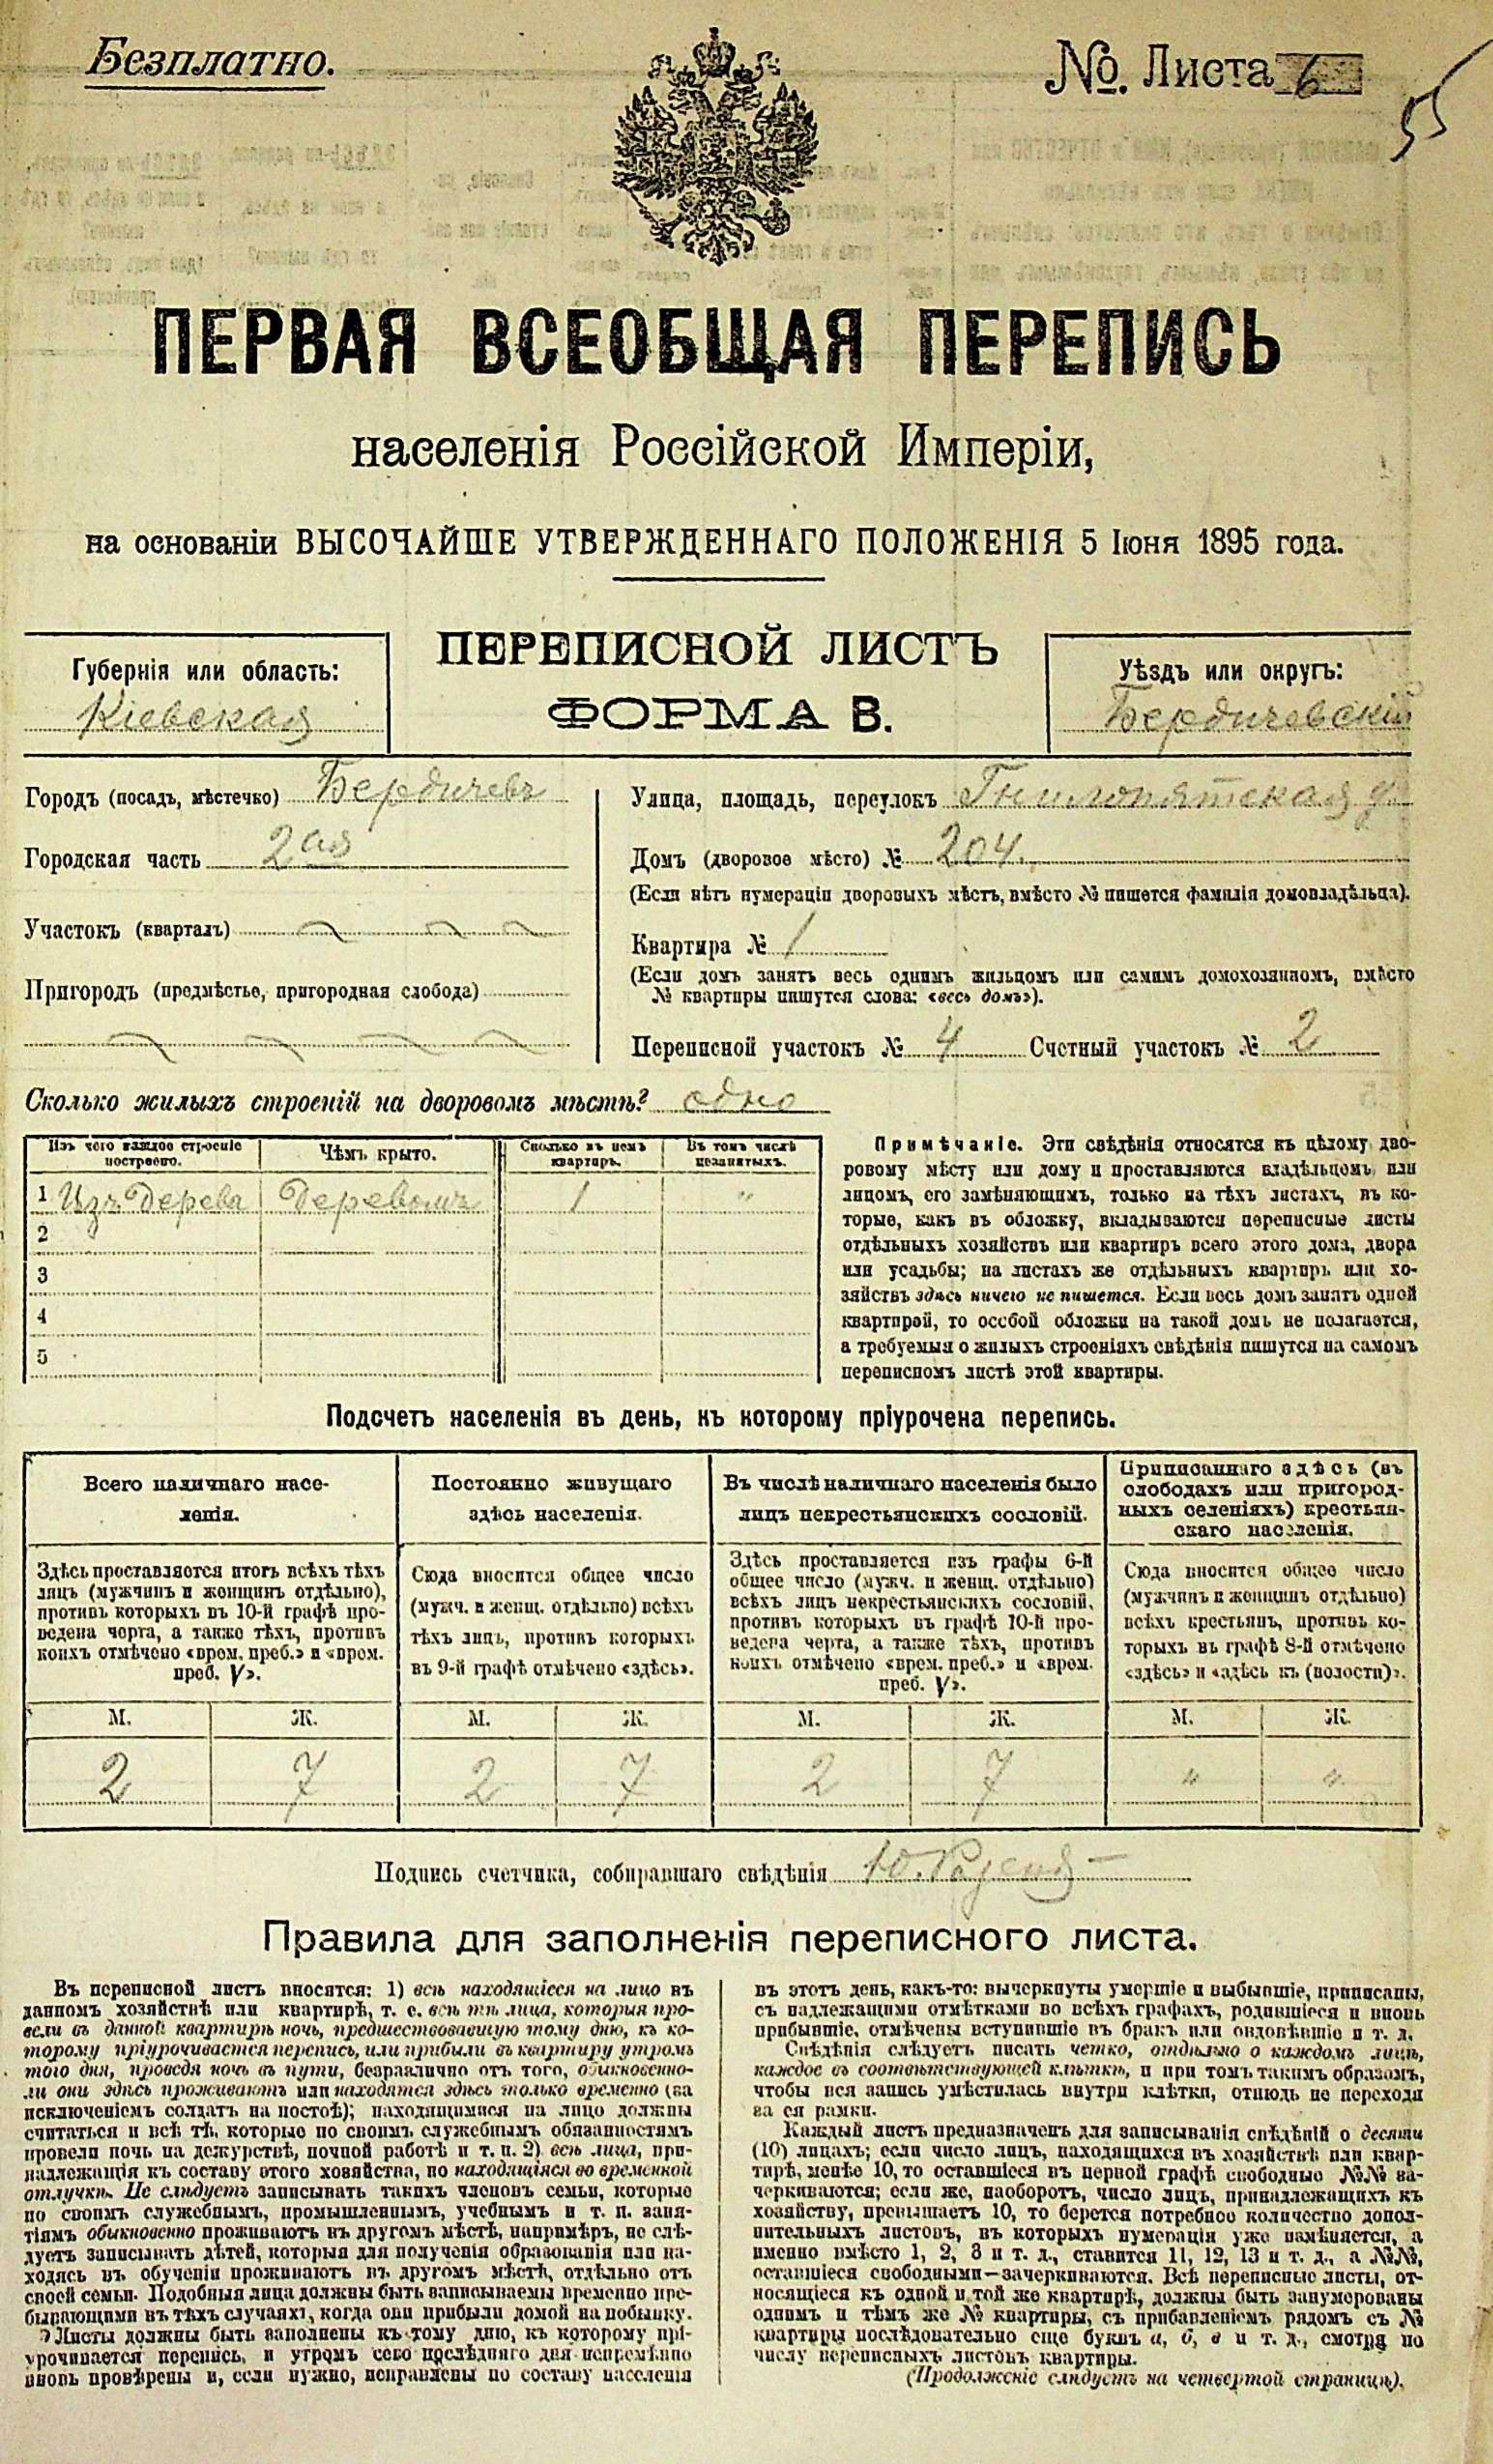 Безплатно.
№. Листа 6
55
ПЕРВАЯ ВСЕОБЩАЯ ПЕРЕПИСЬ
населенія Россійской Имперіи,
на основаніи ВЫСОЧАЙШЕ УТВЕРЖДЕННАГО ПОЛОЖЕНІЯ 5 Іюня 1895 года.
Губернія или область:
Кіевская
ПЕРЕПИСНОЙ ЛИСТЪ
ФОРМА В.
Уѣздъ или округъ:
Бердичевскій
Городъ (посадъ, мѣстечко) Бердичевъ
Городская часть 2ая
Участокъ (кварталъ)
Пригородъ (предмѣстье, пригородная слобода)
Улица, площадь, переулокъ Гнилопятская
Домъ (дворовое мѣсто) № 204.
(Если нѣтъ нумераціи дворовыхъ мѣстъ, вмѣсто № пишется фамилія домовладѣльца).
Квартира № 1
(Если домъ занятъ весь однимъ жильцомъ или самимъ домохозяиномъ, вмѣсто
№ квартиры пишутся слова: «весь домъ»).
Переписной участокъ № 4 Счетный участокъ № 2
Сколько жилыхъ строеній на дворовомъ мѣстѣ? одно
Изъ чего каждое строеніе
построено.
Чѣмъ крыто.
Сколько въ немъ
квартиръ.
Въ томъ числѣ
незанятыхъ.
1 Изъ дерева Деревомъ 1 "
2
3
4
5
Примѣчаніе. Эти свѣдѣнія относятся къ цѣлому дво-
ровому мѣсту или дому и проставляются владѣльцомъ или
лицомъ, его замѣняющимъ, только на тѣхъ листахъ, въ ко-
торые, какъ въ обложку, вкладываются переписные листы
отдѣльныхъ хозяйствъ или квартиръ всего этого дома, двора
или усадьбы; на листахъ же отдѣльныхъ квартиръ или хо-
зяйствъ здѣсь ничего не пишется. Если весь домъ занятъ одной
квартирой, то особой обложки на такой домъ не полагается,
а требуемыя о жилыхъ строеніяхъ свѣдѣнія пишутся на самомъ
переписномъ листѣ этой квартиры.
Подсчетъ населенія въ день, къ которому пріурочена перепись.
Всего наличнаго насе-
ленія.
Постоянно живущаго
здѣсь населенія.
Въ числѣ наличнаго населенія было
лицъ некрестьянскихъ сословій.
Приписаннаго здѣсь (въ
слободахъ или пригород-
ныхъ селеніяхъ) крестьян-
скаго населенія.
Здѣсь проставляется итогъ всѣхъ тѣхъ
лицъ (мужчинъ и женщинъ отдѣльно),
противъ которыхъ въ 10-й графѣ про-
ведена черта, а также тѣхъ, противъ
коихъ отмѣчено «врем. преб.» и «врем.
преб. V».
Сюда вносится общее число
(мужч. и женщ. отдѣльно) всѣхъ
тѣхъ лицъ, противъ которыхъ
въ 9-й графѣ отмѣчено «здѣсь».
Здѣсь проставляется изъ графы 6-й
общее число (мужч. и женщ. отдѣльно)
всѣхъ лицъ некрестьянскихъ сословій,
противъ которыхъ въ графѣ 10-й про-
ведена черта, а также тѣхъ, противъ
коихъ отмѣчено «врем. преб.» и «врем.
преб. V».
Сюда вносится общее число
(мужчинъ и женщинъ отдѣльно)
всѣхъ крестьянъ, противъ ко-
торыхъ въ графѣ 8-й отмѣчено
«здѣсь» и «здѣсь къ (волости)».
М. Ж. М. Ж. М. Ж. М. Ж.
2 7 2 7 2 7 " "
Подпись счетчика, собиравшаго свѣдѣнія
Правила для заполненія переписного листа.
Въ переписной листъ вносятся: 1) всѣ находящіеся на лицо въ
данномъ хозяйствѣ или квартирѣ, т. е. всѣ тѣ лица, которыя про-
вели въ данной квартирѣ ночь, предшествовавшую тому дню, къ ко-
торому пріурочивается перепись, или прибыли въ квартиру утромъ
того дня, проведя ночь въ пути, безразлично отъ того, обыкновенно-
ли они здѣсь проживаютъ или находятся здѣсь только временно (за
исключеніемъ солдатъ на постоѣ); находящимися на лицо должны
считаться и всѣ тѣ, которые по своимъ служебнымъ обязанностямъ
провели ночь на дежурствѣ, ночной работѣ и т. п. 2) всѣ лица, при-
надлежащія къ составу этого хозяйства, но находящіяся во временной
отлучкѣ. Не слѣдуетъ записывать такихъ членовъ семьи, которые
по своимъ служебнымъ, промышленнымъ, учебнымъ и т. п. заня-
тіямъ обыкновенно проживаютъ въ другомъ мѣстѣ, напримѣръ, не слѣ-
дуетъ записывать дѣтей, которыя для полученія образованія или на-
ходясь въ обученіи проживаютъ въ другомъ мѣстѣ, отдѣльно отъ
своей семьи. Подобныя лица должны быть записываемы временно пре-
бывающими въ тѣхъ случаяхъ, когда они прибыли домой на побывку.
Листы должны быть заполнены къ тому дню, къ которому прі-
урочивается перепись, и утромъ сего послѣдняго дня непремѣнно
вновь провѣрены и, если нужно, исправлены по составу населенія
въ этотъ день, какъ-то: вычеркнуты умершіе и выбывшіе, приписаны,
съ надлежащими отмѣтками во всѣхъ графахъ, родившіеся и вновь
прибывшіе, отмѣчены вступившіе въ бракъ или овдовѣвшіе и т. д.
Свѣдѣнія слѣдуетъ писать четко, отдѣльно о каждомъ лицѣ,
каждое въ соотвѣтствующей клѣткѣ, и при томъ такимъ образомъ,
чтобы вся запись умѣстилась внутри клѣтки, отнюдь не переходя
за ея рамки.
Каждый листъ предназначенъ для записыванія свѣдѣній о десяти
(10) лицахъ; если число лицъ, находящихся въ хозяйствѣ или квар-
тирѣ, менѣе 10, то оставшіеся въ первой графѣ свободные №№ за-
черкиваются; если же, наоборотъ, число лицъ, принадлежащихъ къ
хозяйству, превышаетъ 10, то берется потребное количество допол-
нительныхъ листовъ, въ которыхъ нумерація уже измѣняется, а
именно вмѣсто 1, 2, 3 и т. д., ставится 11, 12, 13 и т. д., а №№,
оставшіеся свободными—зачеркиваются. Всѣ переписные листы, от-
носящіеся къ одной и той же квартирѣ, должны быть занумерованы
однимъ и тѣмъ же № квартиры, съ прибавленіемъ рядомъ съ №
квартиры послѣдовательно еще буквъ а, б, в и т. д., смотря по
числу переписныхъ листовъ квартиры.
(Продолженіе слѣдуетъ на четвертой страницѣ).